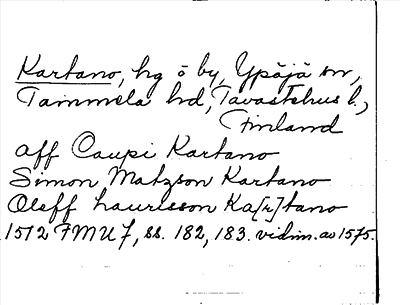 Kartano, hg ō by, Ypäjä sn,
Tammela hd, Tavastehus l.,
Finland
aff Caupi Kartano
Simon Matzson Kartano
Oleff Laurisson Ka[r]tano
1512 FMU 7, ss. 182, 183. vidim. av 1575.